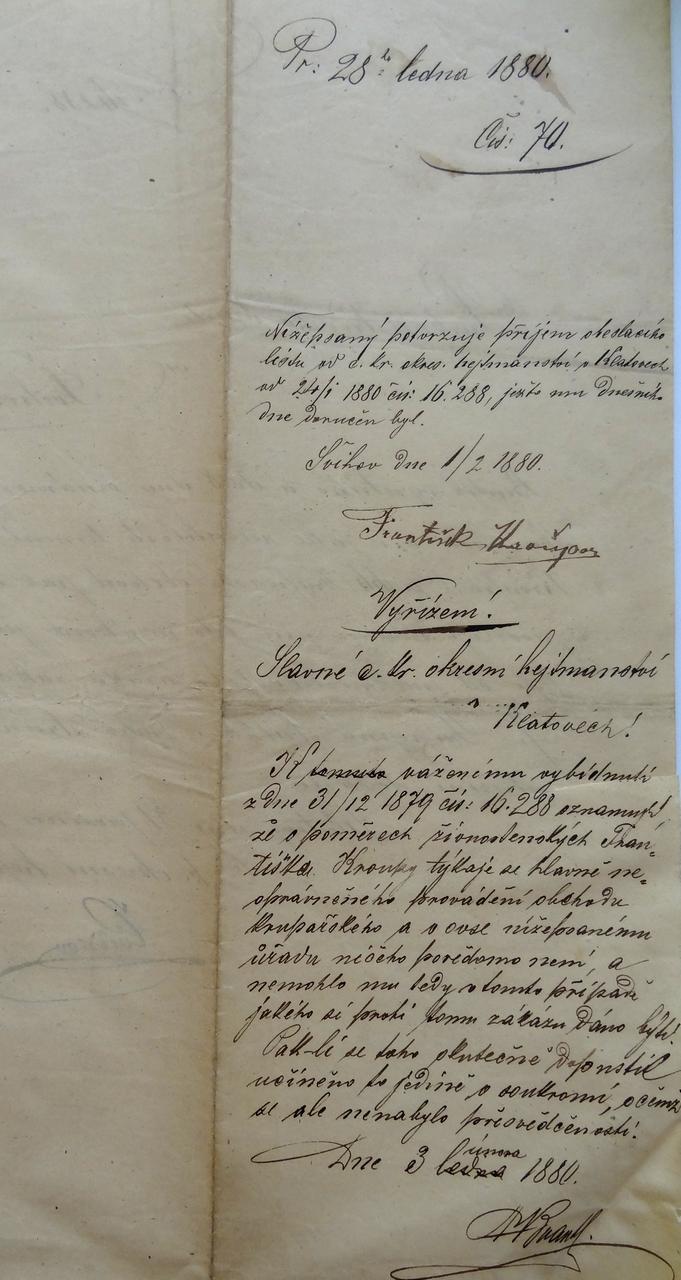 Pr: 28ho ledna 1880.
Čís: 70.
Nížepsaný potvrzuje příjem obeslacího
listu od c. kr. okres. hejtmanství v Klatovech
od 24/1 1880 čís: 16.288, jenž mu dnešního
dne doručen byl.
Švihov dne 1/2 1880.
František Kroupa
Vyřízení!
Slavné c. kr. okresní hejtmanství
v Klatovech!
K tomuto váženému vybídnutí
z dne 31/12 1879 čís: 16.288 oznamuji
že o poměrech živnostenských Fran-
tiška Kroupy týkaje se hlavně ne-
oprávněného provádění obchodu
krupařského a v ovse nížepsanému
úřadu ničeho povědomo není, a
nemohlo mu tedy v tomto případě
jakého si proti tomu zákazu dáno býti.
Pak-li se toho skutečně dopustil
učiněno to jedině v soukromí, o čemž
se ale nenabylo přesvědčenosti!
Dne 3 ledna února 1880.